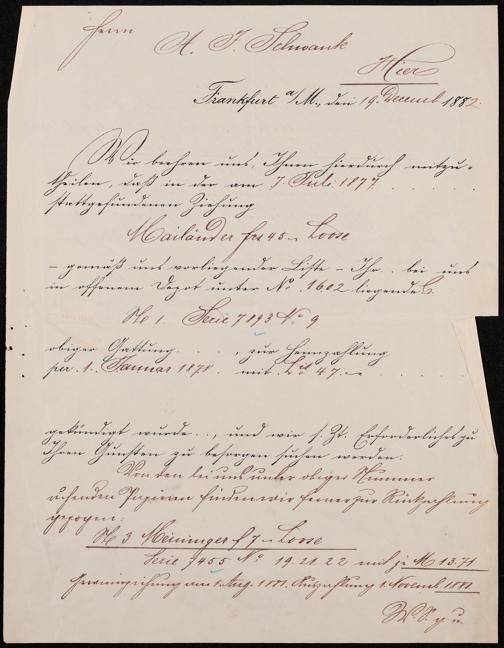 Herrn
A. J. Schwank
Hier
Frankfurt a/M., den 19. Decemb 1882.
Wir beehren uns, Ihnen hierdurch mitzu-
theilen, daß in der am 7. Juli 1877. . . . . . .
stattgefundenen Ziehung
Mailänder frs 45 – Loose
– gemäß uns vorliegender Liste – Ihr . . bei uns
in offenem Depot unter No. 1602 liegendes
St 1. Serie 7193 No 9
obiger Gattung . . . . , zur Heimzahlung
per. 1. Januar 1878. mit 47.–
gekündigt wurde . . . , und wir s. Zt. Erforderliches zu
Ihren Gunsten zu besorgen suchen werden.
Von den bei uns unter obiger Nummer
ruhenden Papieren finden wir ferner zur Rückzahlung
gezogen:
St 3 Meininger f 7 – Loose
Serie 7455 No 19. 21. 22 mit je M 13.71
Gewinnziehung am 1. Aug. 1881. Auszahlung 1. Novemb 1881